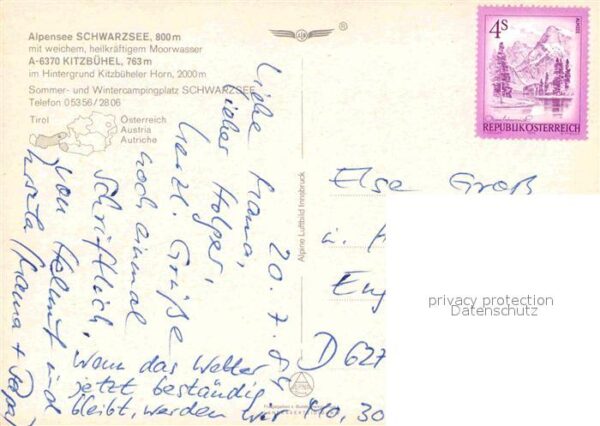 Alpensee SCHWARZSEE, 800 m
mit weichem, heilkräftigem Moorwasser
A-6370 KITZBÜHEL, 763 m
im Hintergrund Kitzbüheler Horn, 2000 m
Sommer- und Wintercampingplatz SCHWARZSEE
Telefon 05356/2806
Tirol
Österreich
Austria
Autriche
20.7.84
Liebe Mama,
lieber Holger,
herzl. Grüße
noch einmal
schriftlich,
von Helmut und
(Mama + Papa)
Wenn das Wetter
jetzt beständig
bleibt, werden wir
Mo, 30
Alpine Luftbild Innsbruck
4 S
REPUBLIK ÖSTERREICH
Else Groß
D 627
privacy protection
Datenschutz